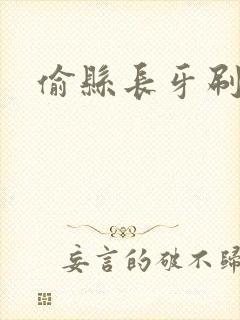 偷縣長牙刷
妄言的破不歸